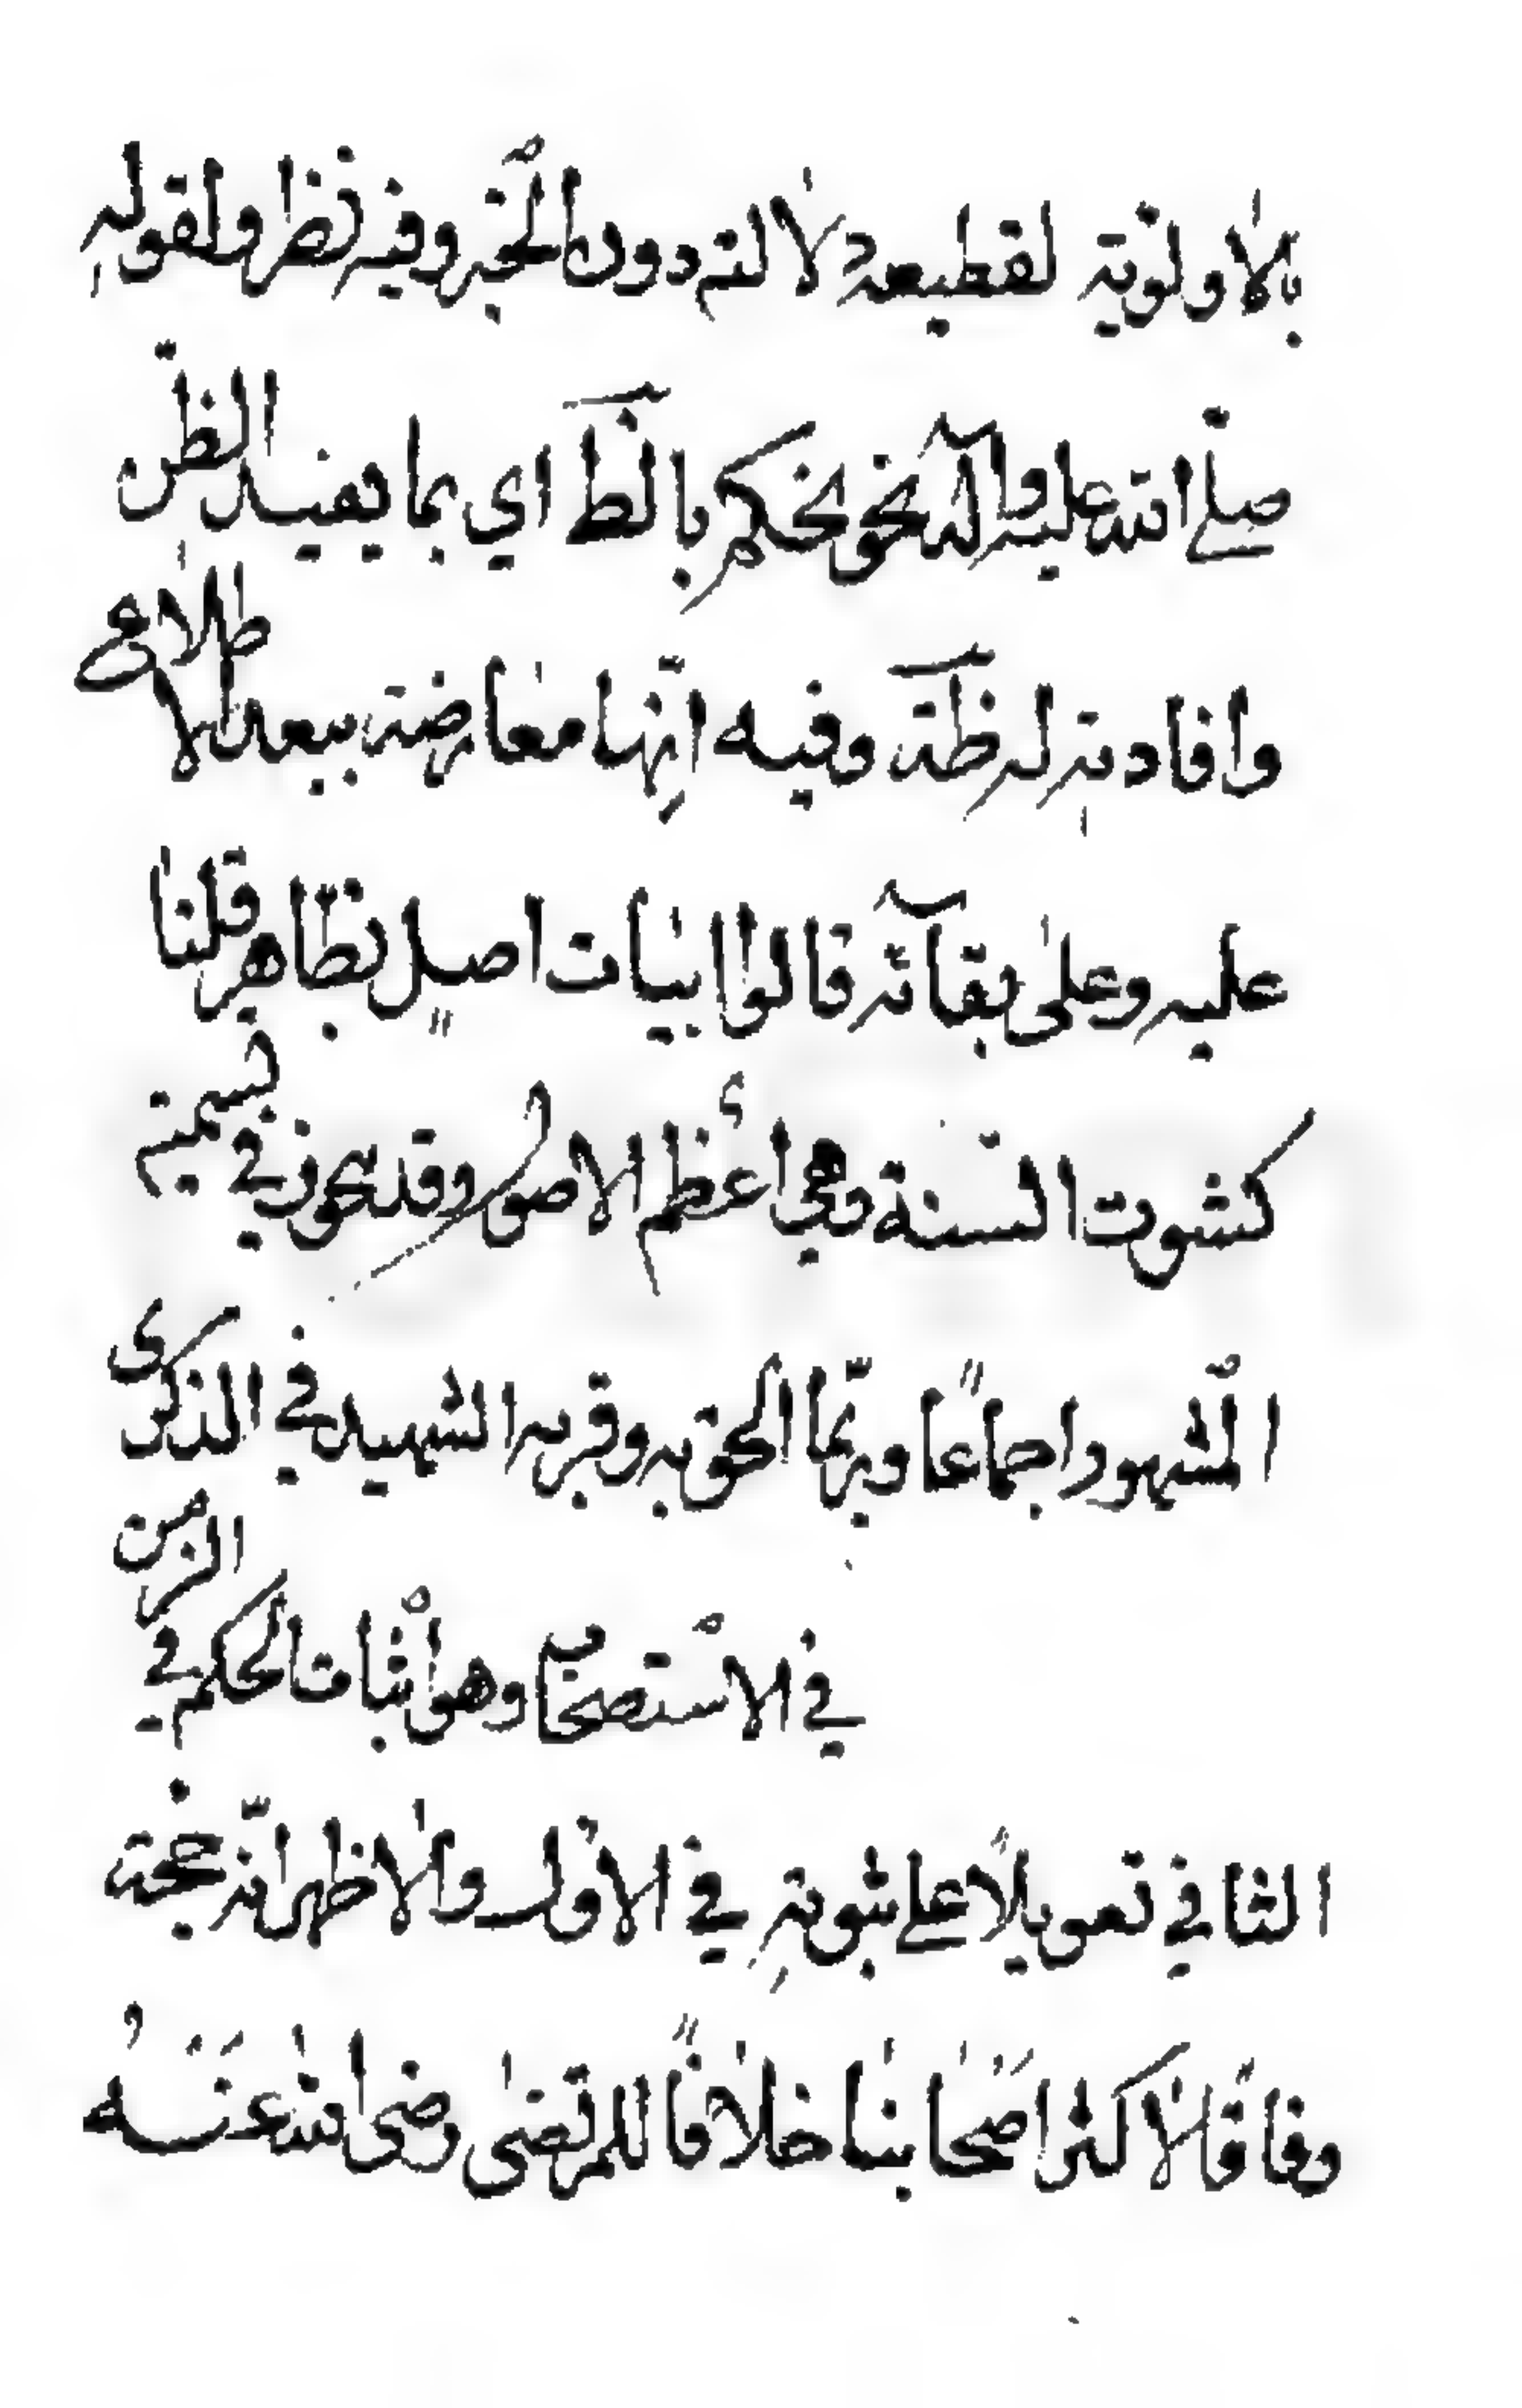 بالاولويّة لقطيعة دلالته دون الخبر وفيه نظر ولقوله
صلّى الله عليه وآله نحو نحكم بالظ اي بما يفيد الظّن
وافادته له ظنّه وفيه انّها معارضة ببعد الاطلاع
عليه وعلى بقآئه قالوا اثبات اصلٍ بظّاهر قلنا
كثبوت السّنة وهي أعظم الاصول وقد يجوز في قسميه
المشهور اجماعًا وربّما الحق به وقربه الشهيد في الذكرى
في الاستصحاب وهو اثبات الحكم في الزمن
الثاني تعويلًا على ثبوته في الاوّل والاظهر انّه حجّة
وفاقًا لاكثر اصحابنا خلافًا للمرتضى رضى الله عنه